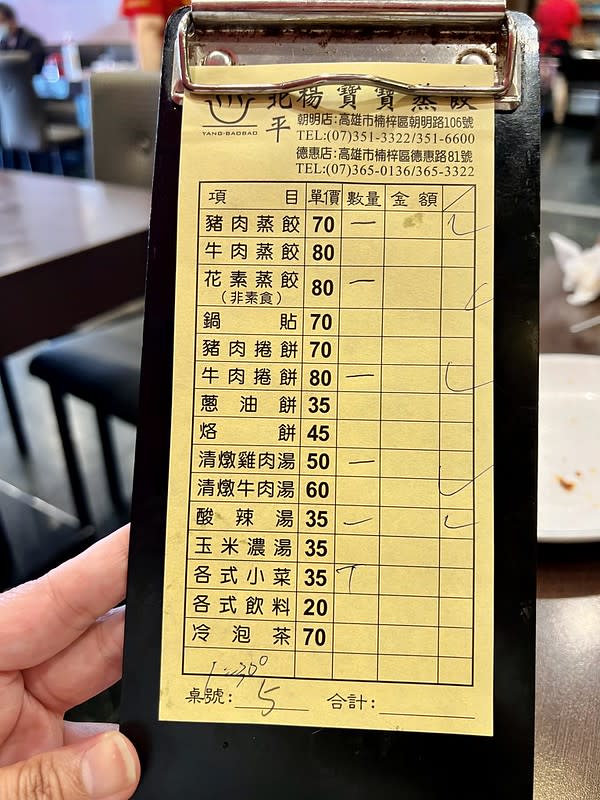 北平楊寶寶蒸餃
YANG-BAOBAO
朝明店：高雄市楠梓區朝明路106號
TEL:(07)351-3322/351-6600
德惠店：高雄市楠梓區德惠路81號
TEL:(07)365-0136/365-3322
項目 單價 數量 金額
豬肉蒸餃 70 一
牛肉蒸餃 80
花素蒸餃 80 一
(非素食)
鍋貼 70
豬肉捲餅 70
牛肉捲餅 80 一
蔥油餅 35
烙餅 45
清燉雞肉湯 50 一
清燉牛肉湯 60
酸辣湯 35 一
玉米濃湯 35
各式小菜 35
各式飲料 20
冷泡茶 70
桌號: 5 合計: